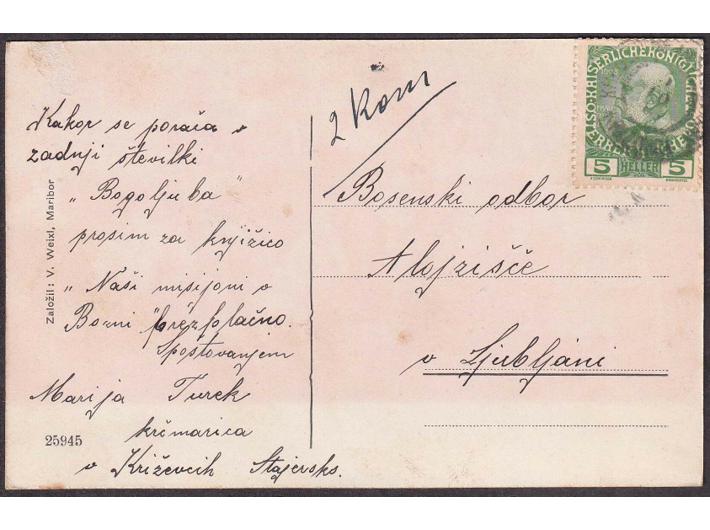 Kakor se poroča v
zadnji številki
„Bogoljuba"
prosim za knjižico
„Naši misijoni v
Bozni" brezplačno.
Spoštovanjem
Marija Turek
krčmarica
v Križevcih Štajersko.
25945
Založil: V. Weixl, Maribor
2 Kom
Bosenski odbor
Alojzišče
v Ljubljani
5 HELLER 5